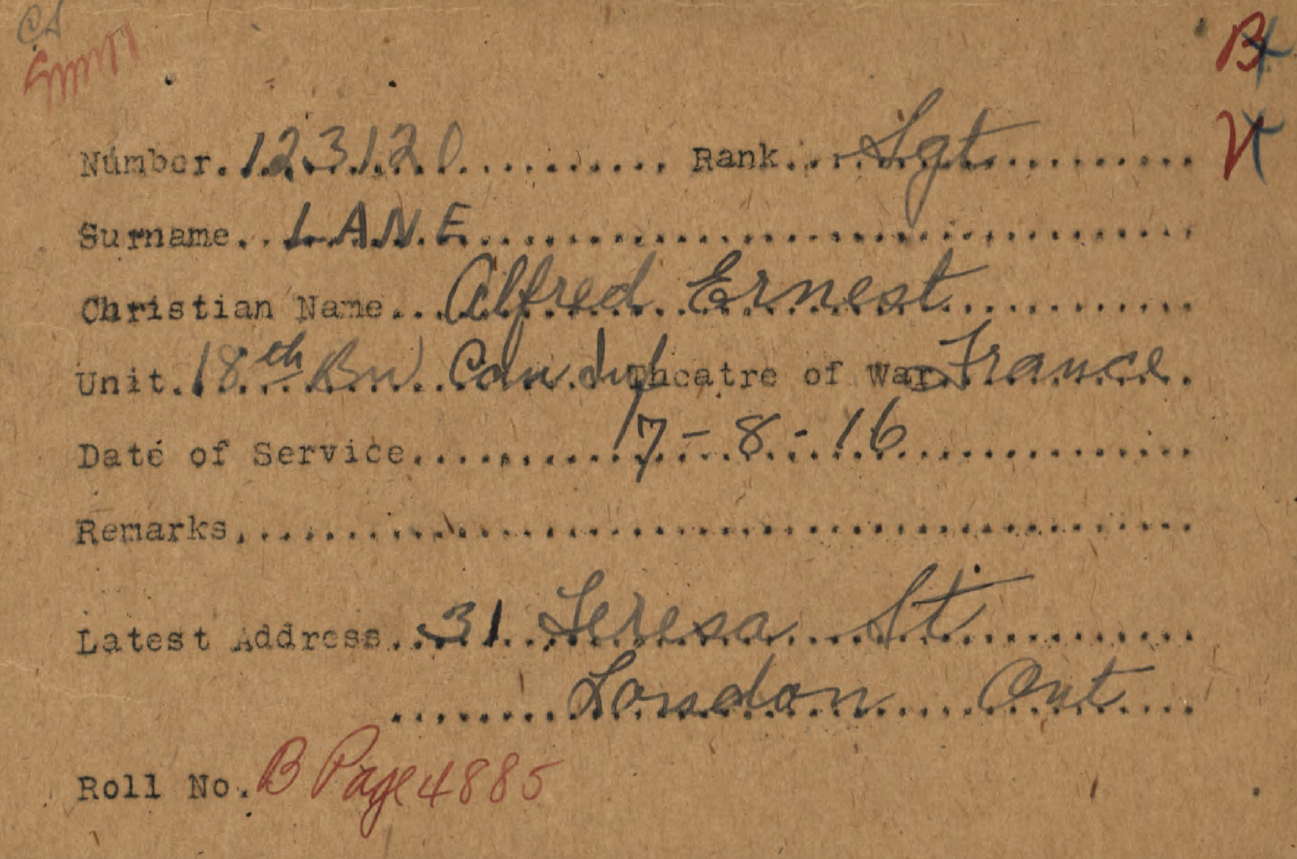 CS
B
V
Number. 123120 Rank. Sgt
Surname. LANE
Christian Name. Alfred Ernest
Unit. 18th Bn Can. Inf Theatre of War. France
Date of Service. 17-8-16
Remarks.
Latest Address. 31 Teresa St
London Ont
Roll No. B Page 4885